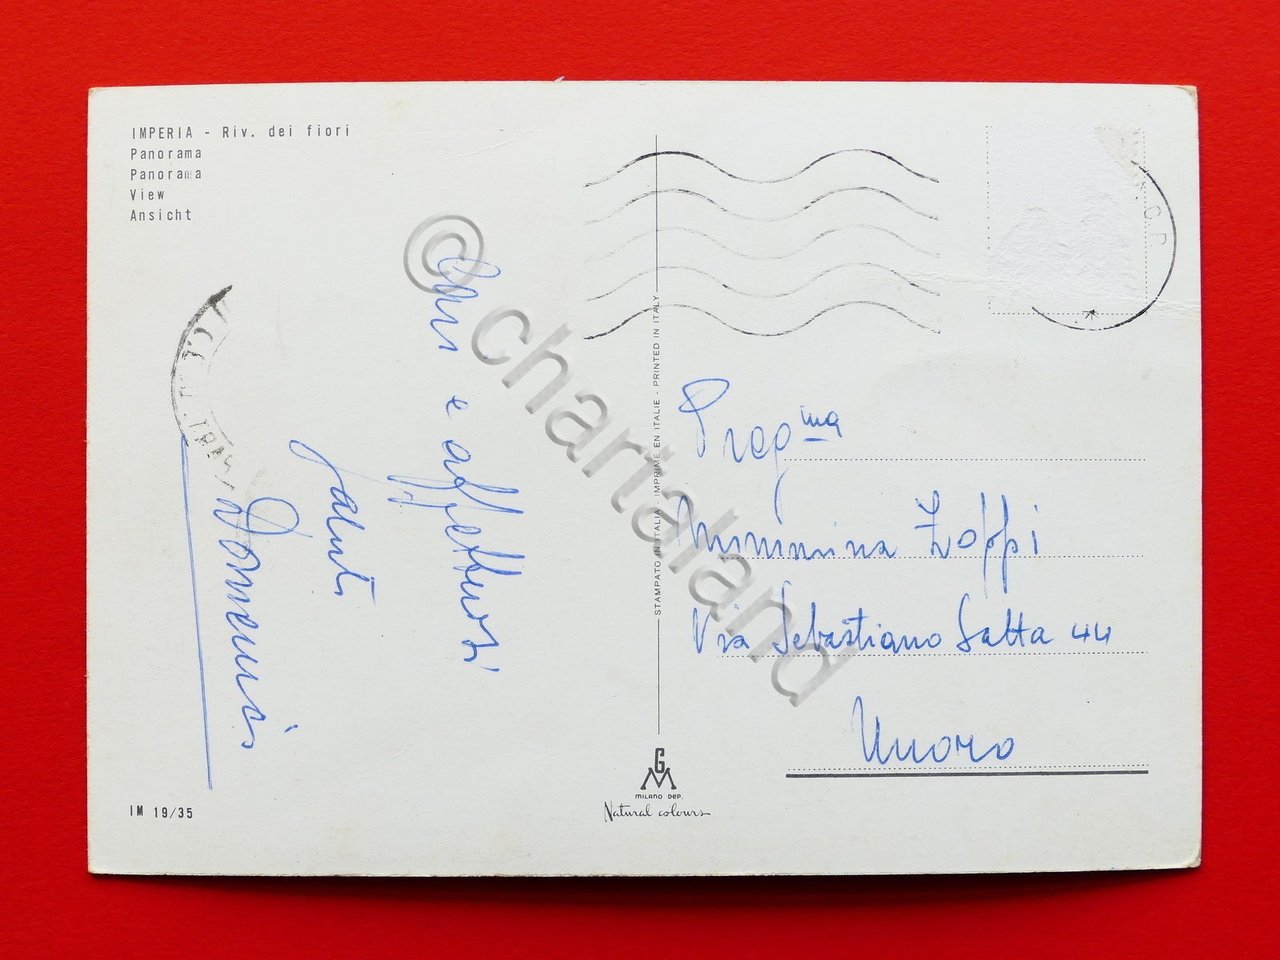 IMPERIA - Riv. dei fiori
Panorama
Panorama
View
Ansicht
Cari e affettuosi
saluti
© chartaland
STAMPATO IN ITALIA - IMPRIME EN ITALIE - PRINTED IN ITALY
Preg.ma
Mimmina Zoppi
Via Sebastiano Satta 44
Nuoro
IM 19/35
GM
MILANO DEP.
Natural colours